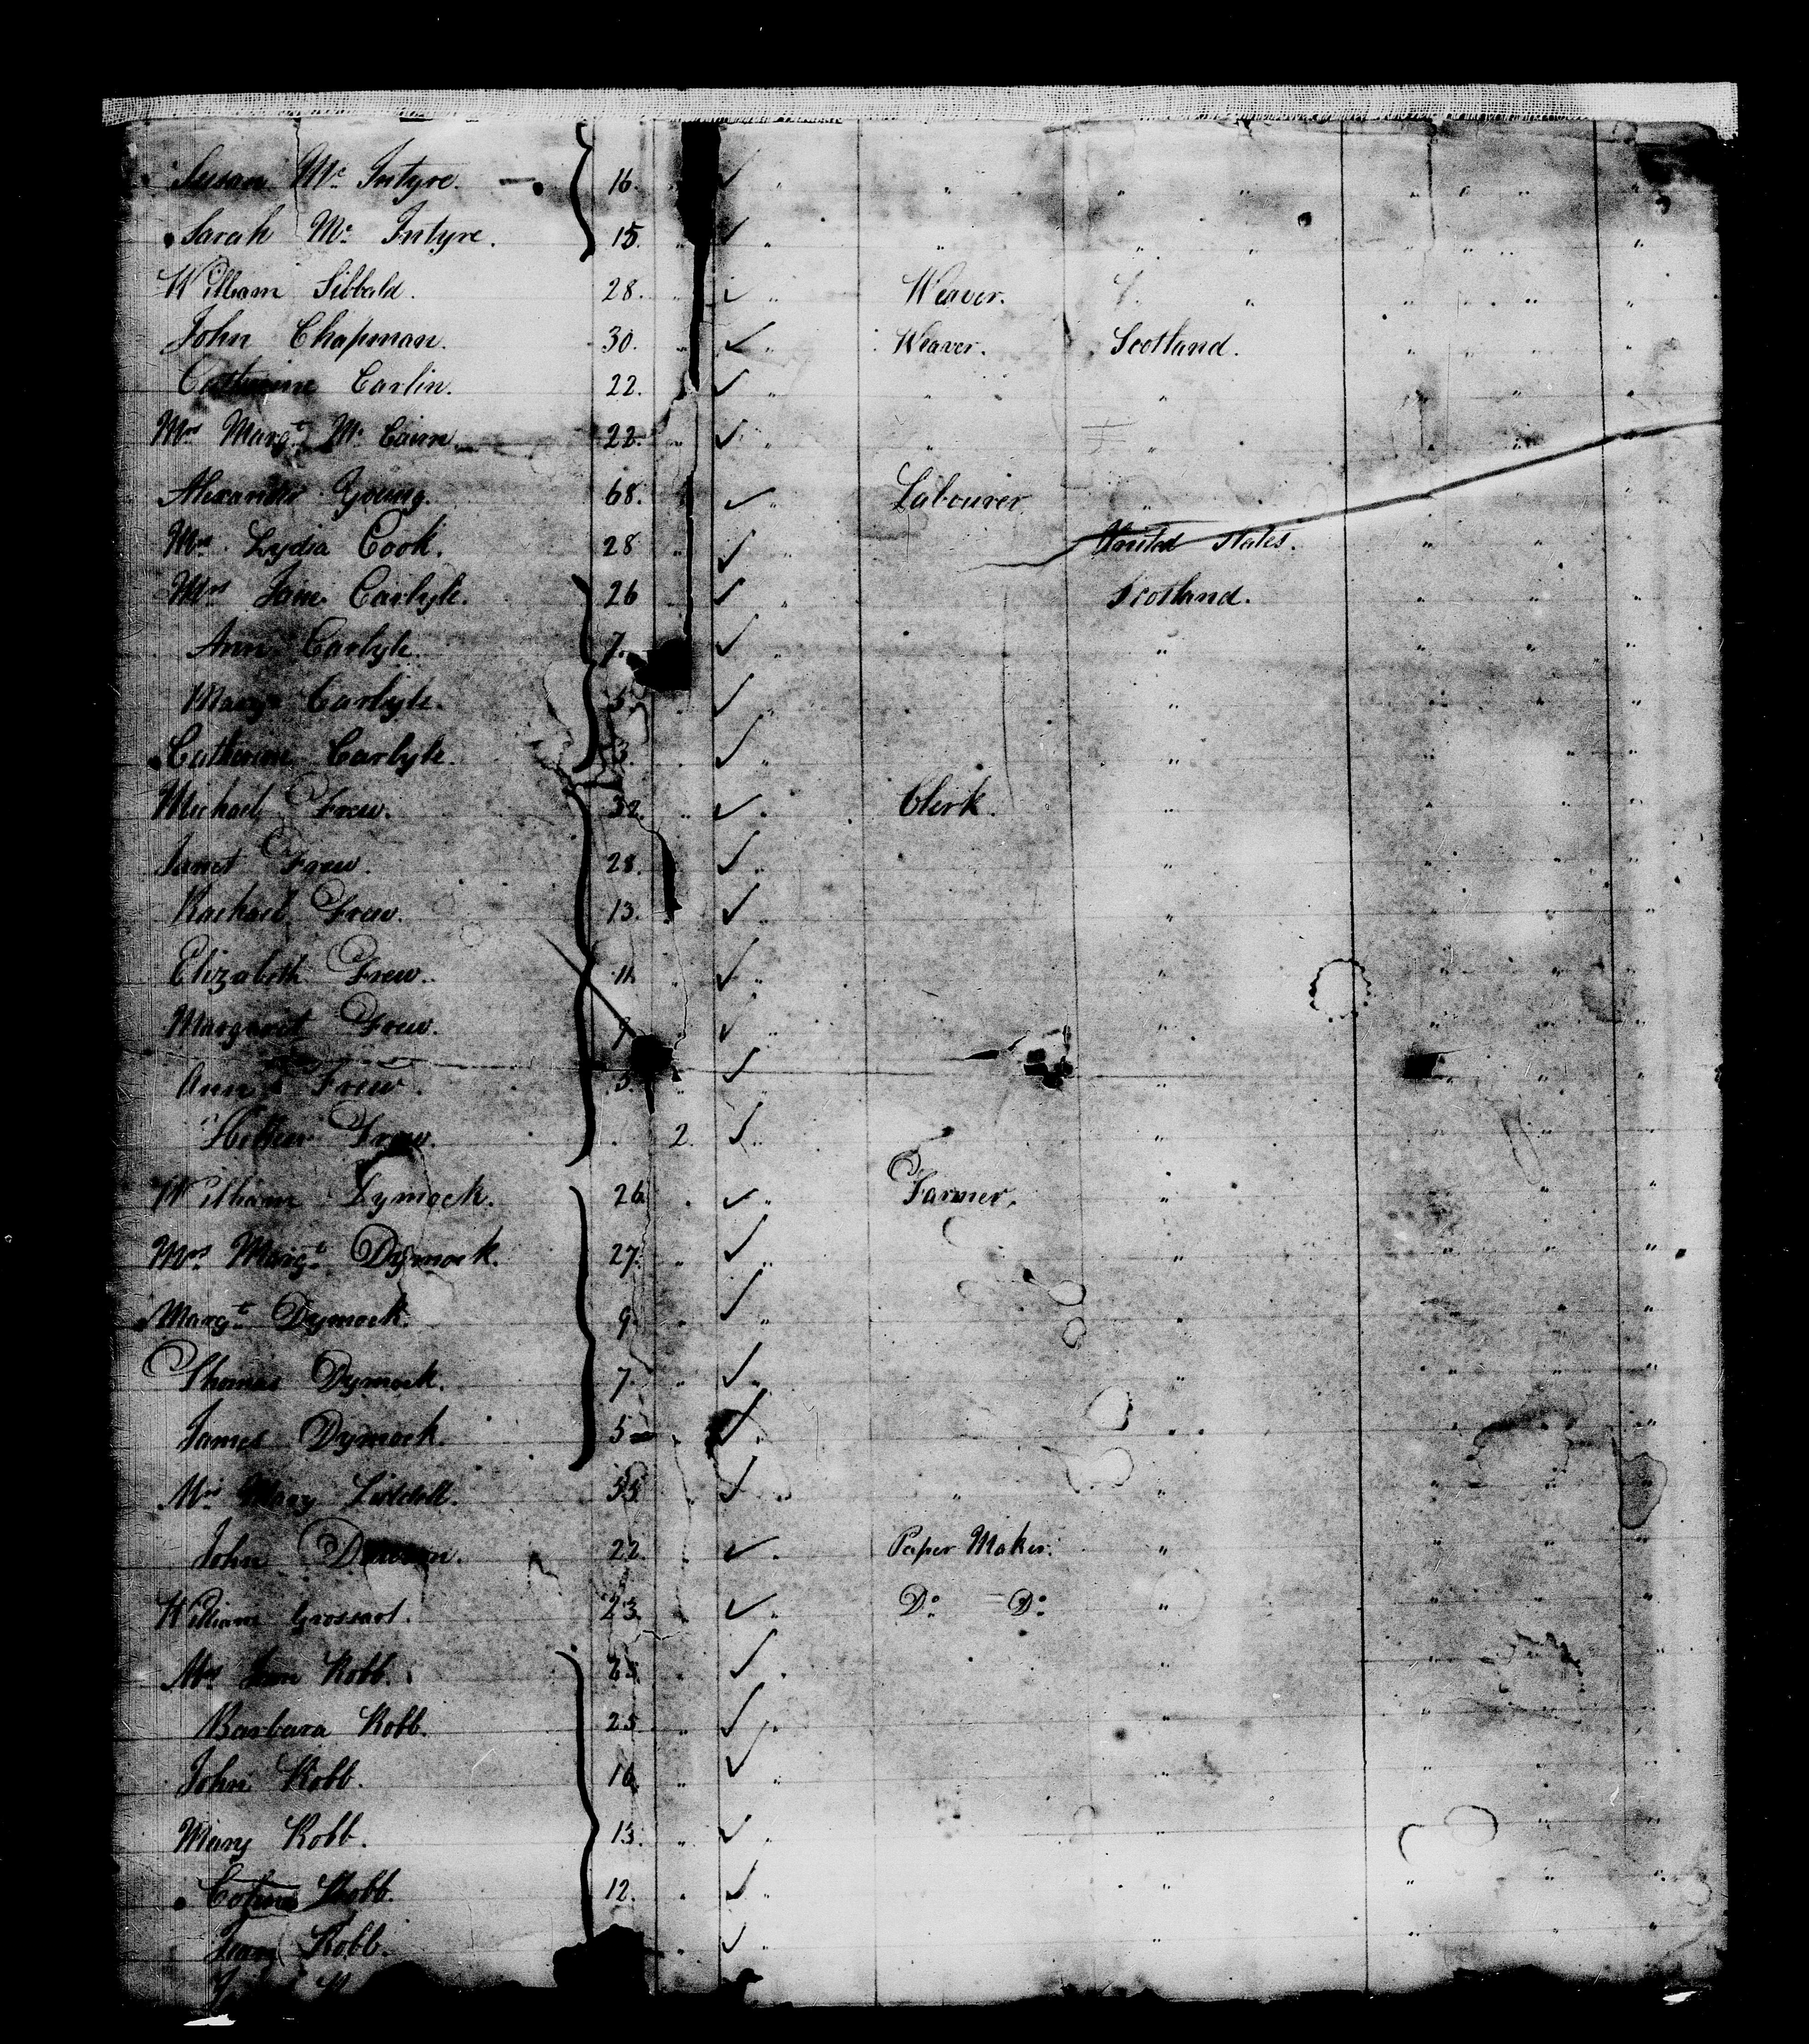 Susan Mc Intyre. 16. " " " " " " " "
Sarah Mc Intyre. 15. " " " " " " " "
William Sibbald. 28. " " Weaver. " " " " "
John Chapman. 30. " " Weaver. Scotland. " " " "
Catherine Carlin. 22. " " " " " " "
Mrs Margt Mc 22. " " " " " " "
Alexander Young. 68. " Labourer " " " "
Mrs Lydia Cook. 28 " " United States. " " "
Mrs Jane Carlyle. 26 " " Scotland. " " "
Ann Carlyle. 7. " " " " "
Mary Carlyle. 5. " " " " "
Catherine Carlyle. 3. " " " " "
Michael Frew. 32. " " Clerk. " " " "
Janet Frew. 28. " " " " "
Rachael Frew. 13. " " " " "
Elizabeth Frew. 11. " " " " " "
Margaret Frew. " " " " "
Ann Frew. 3. " " " " " "
Frew. 2. " " " "
William Dymock. 26 " " Farmer. " " "
Mrs Margt Dymock. 27. " " " " " "
Margt Dymock. 9. " " " " " "
Thomas Dymock. 7. " " " " " "
James Dymock. 5 " " " " " "
Mrs Mary Liddell. 55 " " " " " " "
John 22. " " Paper Maker. " " " "
William Grossart. 23. " " Do Do " " " "
Mrs Robb. " " " " " "
Barbara Robb. 25 " " " " " "
John Robb. 16 " " " " " "
Mary Robb. 13. " " " " "
Robb. 12. " " " " " "
Jean Robb. " " " " " "